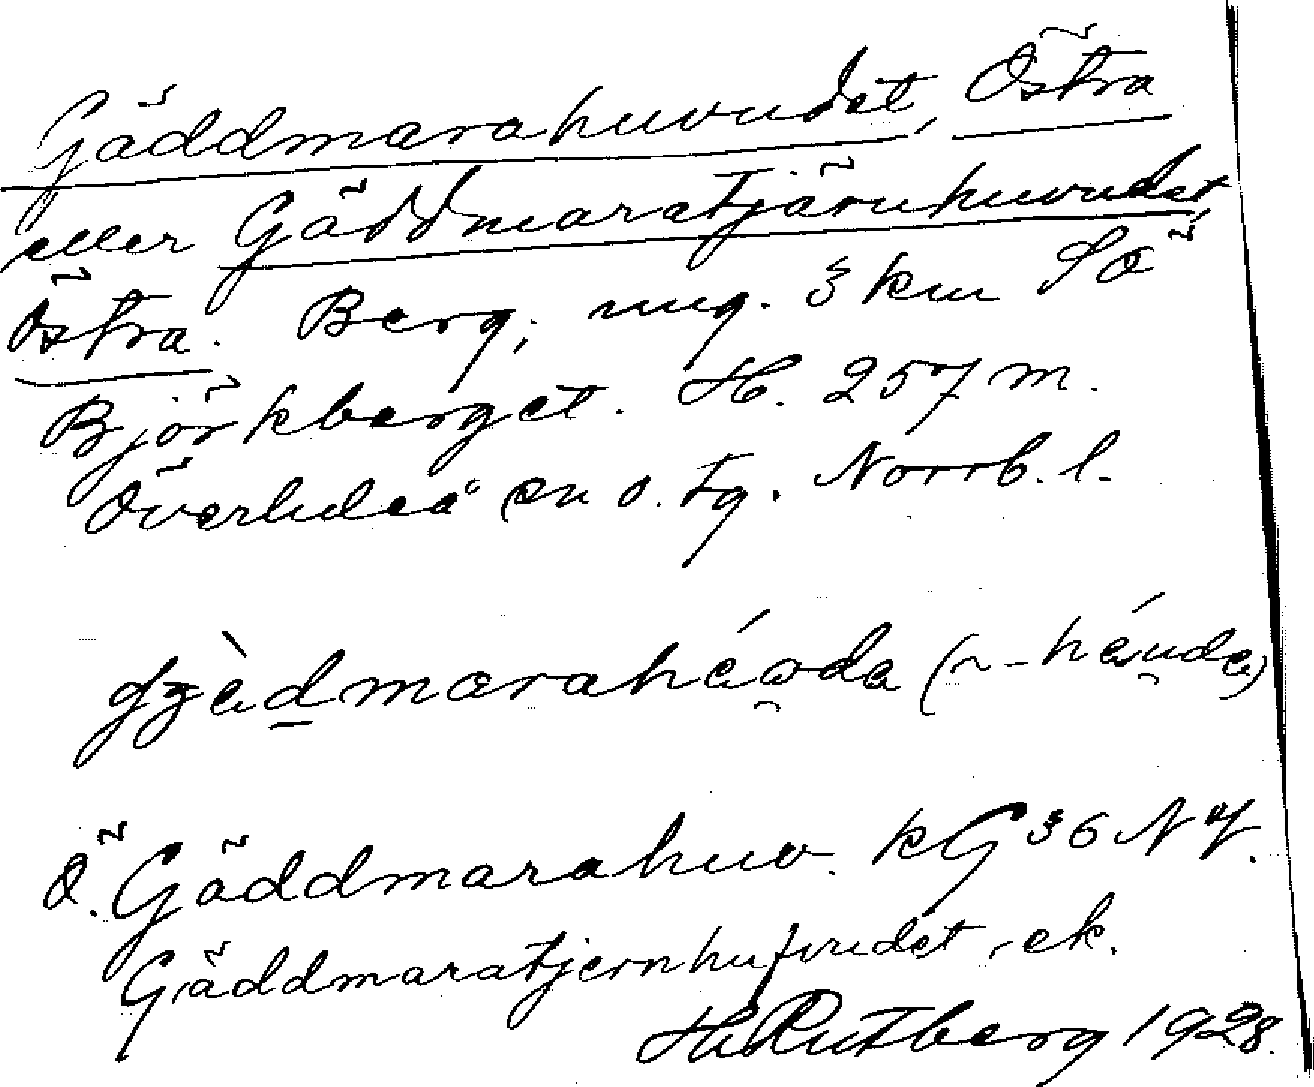 Gäddmarahuvudet, Östra
eller Gäddmaratjärnhuvudet,
Östra. Berg, ung. 3 km SÖ
Björkberget. H. 257 m.
Överluleå sn o. tg. Norrb. l.
gʒὲdmarahéωda (~-héuda)
Ö. Gäddmarahuv. kG 36 NV.
Gäddmaratjernhufvudet, ek.
H. Rutberg 1928.